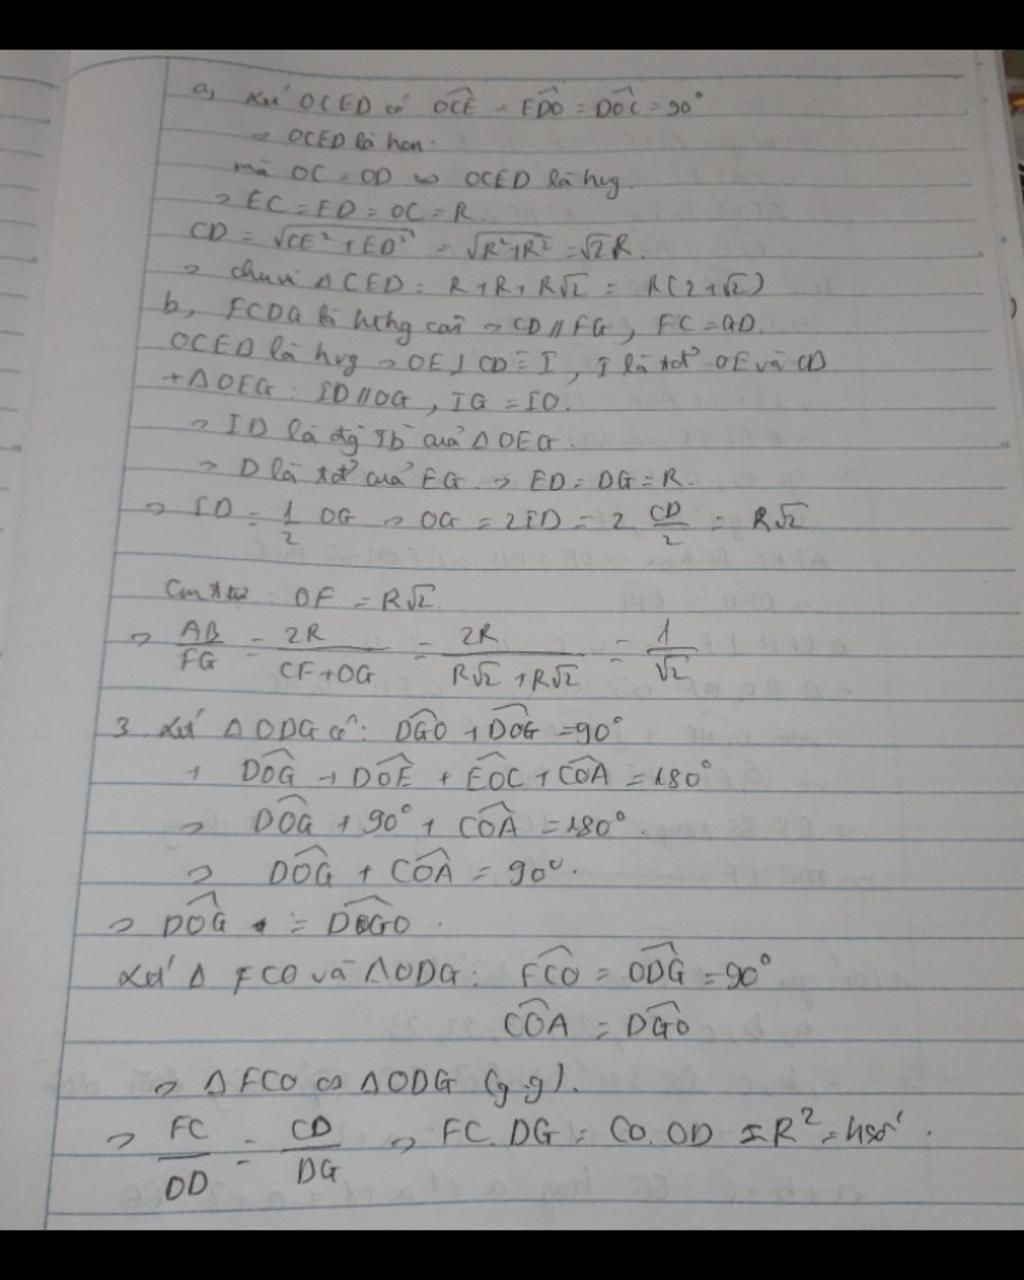 a, Xét OCED có OCE = EDO = DOC = 90°
⇒ OCED là hcn.
mà OC = OD ⇒ OCED là hvg.
⇒ EC = ED = OC = R.
CD = √CE² + ED² = √R² + R² = √2 R.
⇒ chu vi Δ CED = R + R + R√2 = R(2+√2)
b, FCDG là hthg cân ⇒ CD // FG, FC = GD.
OCED là hvg ⇒ OE ⊥ CD ≡ I, I là tđ OE và CD
+ Δ OEG : ID // OG, IG = IO.
⇒ ID là đg tb của Δ OEG.
⇒ D là tđ của EG. ⇒ ED = DG = R.
⇒ ID = 1/2 OG ⇒ OG = 2ID = 2 . CD/2 = R√2
Cm ttự : OF = R√2.
⇒ AB/FG = 2R/CF+OG = 2R/R√2 + R√2 = 1/√2
3. Xét Δ ODG có: DGO + DOG = 90°
+ DOG + DOE + EOC + COA = 180°
⇒ DOG + 90° + COA = 180°.
⇒ DOG + COA = 90°.
⇒ DOG = DGO.
Xét Δ FCO và Δ ODG: FCO = ODG = 90°
COA = DGO
⇒ Δ FCO ∽ Δ ODG (g.g).
⇒ FC/OD = CD/DG ⇒ FC. DG = CO. OD = R² = kđổi.